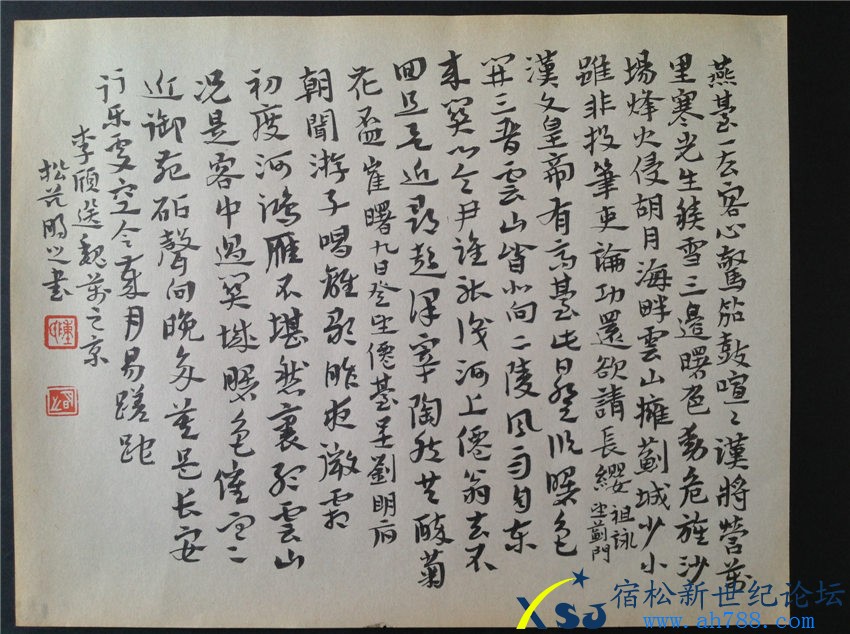 燕臺一去客心驚笳鼓喧〻漢將營萬
里寒光生積雪三邊曙色動危旌沙
場烽火侵胡月海畔雲山擁薊城少小
雖非投筆吏論功還欲請長纓 祖詠
望薊門
漢文皇帝有高臺此日登臨曙色
開三晋雲山皆北向二陵風雨自東
来關门令尹誰能識河上僊翁去不
回且欲近尋彭澤宰陶然共醉菊
花盃 崔曙九日登望僊臺呈劉明府
朝聞游子唱離歌昨夜微霜
初度河鴻雁不堪愁裏聽雲山
况是客中過關城曙色催寒
近御苑砧聲向晚多莫是长安
行乐處空令歲月易蹉跎
李頎送魏萬之京
松 之書
XSJ
宿松新世纪论坛
www.ah788.com